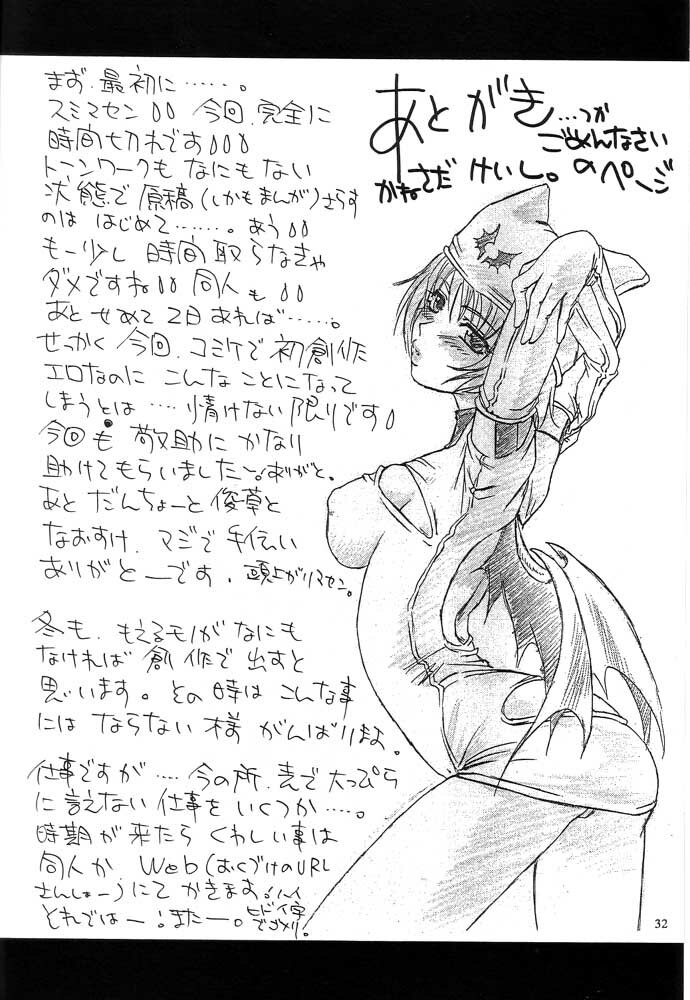 あとがき…つか
ごめんなさい
のページ
かねさだ けいし。
まず、最初に……。
スミマセン 今回、完全に
時間切れです
トーンワークも なにもない
状態で 原稿(しかもまんが)さらす
のは はじめて……。あう
もー少し 時間 取らなきゃ
ダメですね 同人も
あと せめて 2日 あれば……。
せっかく 今回、コミケで 初創作
エロなのに こんな ことになって
しまうとは… 情けない 限りです
今回も 敬助に かなり
助けてもらいました〜。ありがと。
あと だんちょーと 俊草と
なおすけ、マジで 手伝い
ありがとーです。頭上がりマセン。
冬も、もえるモノが なにも
なければ 創作で 出すと
思います。その時は こんな事
には ならない 様 がんばります。
仕事ですが… 今の所、表で 大っぴら
に 言えない 仕事を いくつか…。
時期が 来たら くわしい事は
同人か Web(おくづけのURL
さんしょー)にて かきます!ハイ
それではー!またー。ヒドイ字
でゴメリ!
32